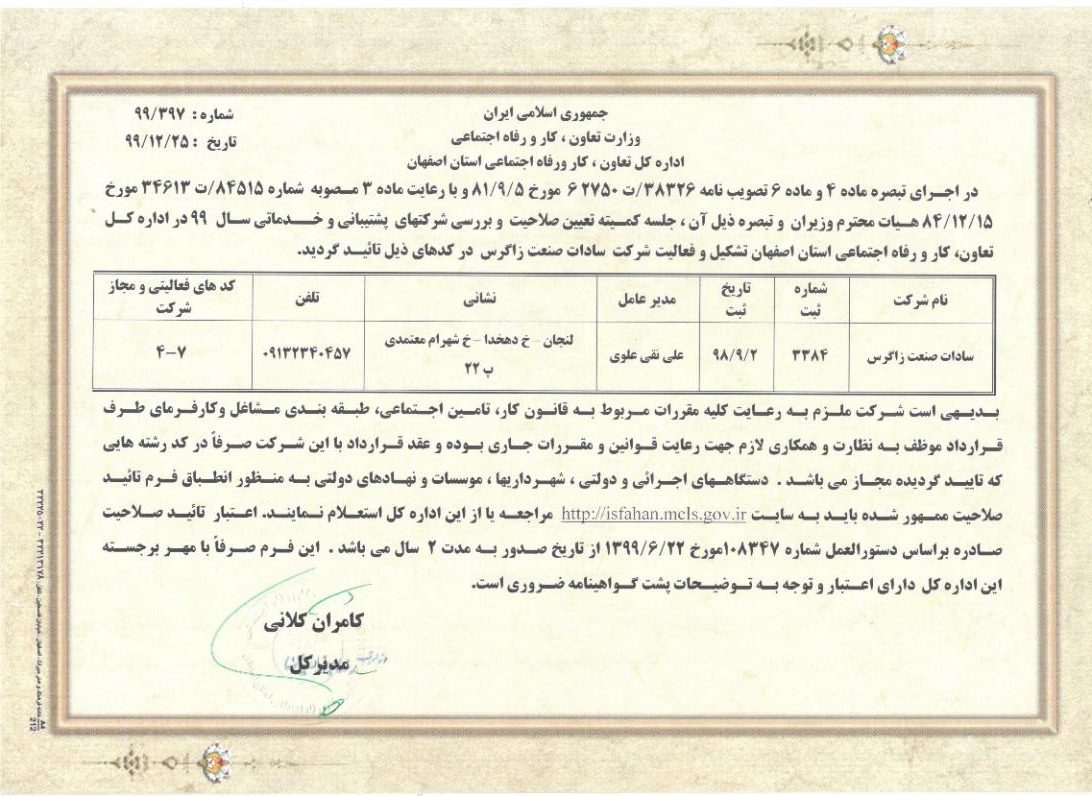 شماره: ۹۹/۳۹۷
تاریخ : ۹۹/۱۲/۲۵
جمهوری اسلامی ایران
وزارت تعاون ، کار و رفاه اجتماعی
اداره کل تعاون ، کار ورفاه اجتماعی استان اصفهان
در اجرای تبصره ماده ۴ و ماده ۶ تصویب نامه ۳۸۳۲۶/ت ۲۷۵۰ ۶ مورخ ۸۱/۹/۵ و با رعایت ماده ۳ مصوبه شماره ۸۴۵۱۵/ت ۳۴۶۱۳ مورخ
۸۴/۱۲/۱۵ هیات محترم وزیران و تبصره ذیل آن ، جلسه کمیته تعیین صلاحیت و بررسی شرکتهای پشتیبانی و خدماتی سال ۹۹ در اداره کل
تعاون، کار و رفاه اجتماعی استان اصفهان تشکیل و فعالیت شرکت سادات صنعت زاگرس در کدهای ذیل تائید گردید.
نام شرکت
شماره ثبت
تاریخ ثبت
مدیر عامل
نشانی
تلفن
کد های فعالیتی و مجاز شرکت
سادات صنعت زاگرس
۳۳۸۴
۹۸/۹/۲
علی نقی علوی
لنجان - خ دهخدا - خ شهرام معتمدی
پ ۲۲
۰۹۱۳۲۳۴۰۴۵۷
۴-۷
بدیهی است شرکت ملزم به رعایت کلیه مقررات مربوط به قانون کار، تامین اجتماعی، طبقه بندی مشاغل وکارفرمای طرف
قرارداد موظف به نظارت و همکاری لازم جهت رعایت قوانین و مقررات جاری بوده و عقد قرارداد با این شرکت صرفاً در کد رشته هایی
که تایید گردیده مجاز می باشد . دستگاههای اجرائی و دولتی ، شهرداریها ، موسسات و نهادهای دولتی به منظور انطباق فرم تائید
صلاحیت ممهور شده باید به سایت http://isfahan.mcls.gov.ir مراجعه یا از این اداره کل استعلام نمایند. اعتبار تائید صلاحیت
صادره براساس دستورالعمل شماره ۱۰۸۳۴۷مورخ ۱۳۹۹/۶/۲۲ از تاریخ صدور به مدت ۲ سال می باشد . این فرم صرفاً با مهر برجسته
این اداره کل دارای اعتبار و توجه به توضیحات پشت گواهینامه ضروری است.
کامران کلانی
مدیرکل
A4
212